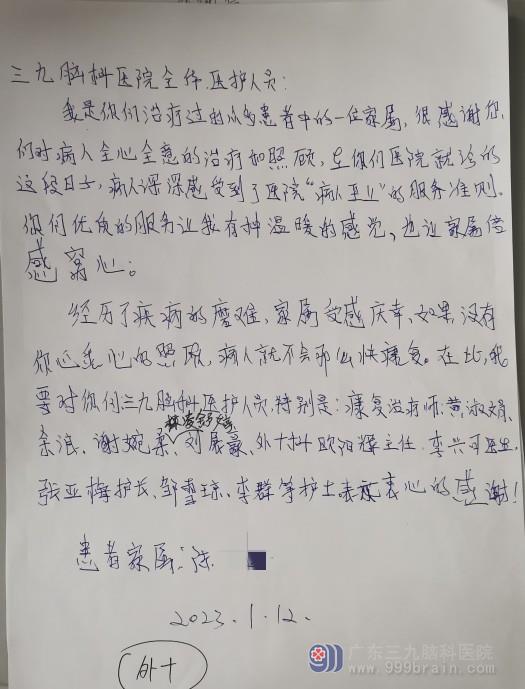 三九脑科医院全体医护人员:
我是你们治疗过的众多患者中的一位家属,很感谢您
们对病人全心全意的治疗和照顾,在你们医院就诊的
这段日子,病人深深感受到了医院“病人至上”的服务准则。
你们优质的服务让我有种温暖的感觉,也让家属倍
感窝心。
经历了疾病的磨难,家属受感庆幸,如果没有
你们悉心的照顾,病人就不会那么快康复。在此,我
要对你们三九脑科医护人员,特别是:康复治疗师,黄淑娟、
余浪、谢婉柔、刘展豪、外十科欧阳辉主任、李兴可医生,
张亚梅护长、邹雪琼、李群等护士表示衷心的感谢!
患者家属:陈
2023.1.12.
外十
广东三九脑科医院
www.999brain.com